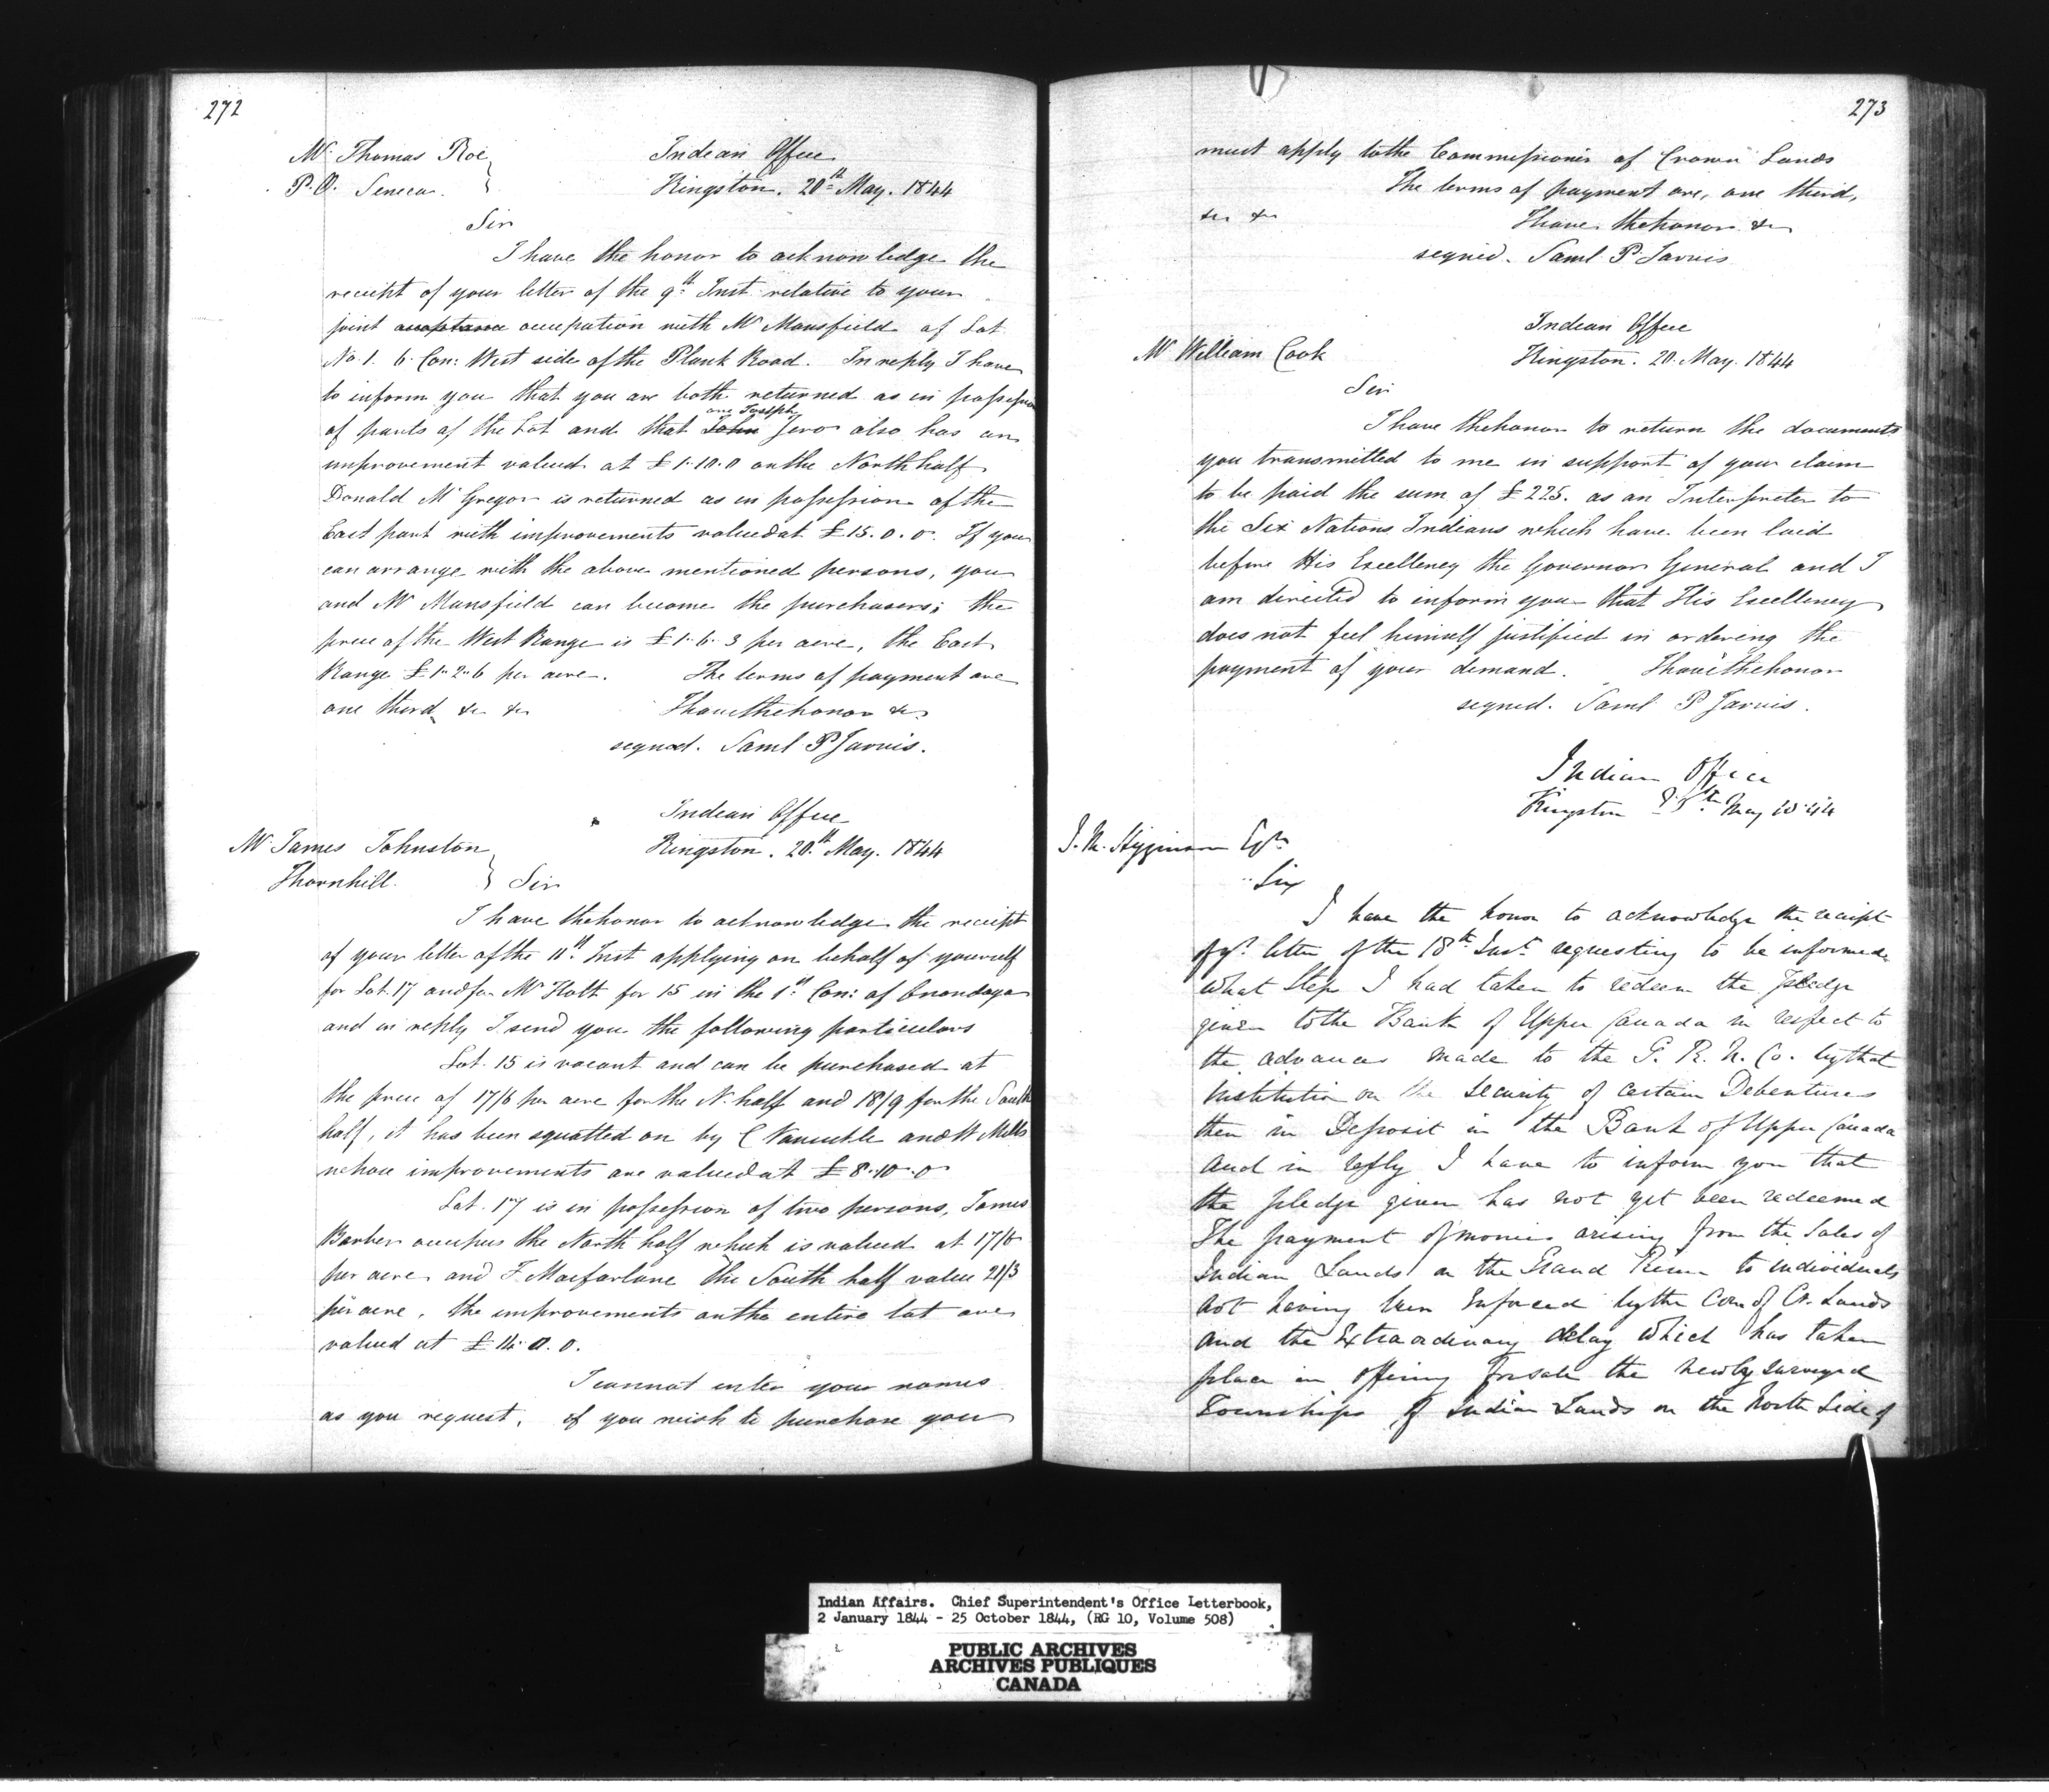 272
Mr Thomas Roe
P.O. Seneca.
Indian Office
Kingston. 20th May. 1844
Sir
I have the honor to acknowledge the
receipt of your letter of the 9th Inst relative to your
joint acceptance occupation with Mr Mansfield of Lot
No 1. 6 Con: West side of the Plank Road. In reply I have
to inform you that you are both returned as in possession
of parts of the Lot and that John one Joseph Jero also has an
improvement valued at £1.10.0 on the North half
Donald McGregor is returned as in possession of the
East part with improvements valued at £15.0.0. If you
can arrange with the above mentioned persons, you
and Mr Mansfield can become the purchasers; the
price of the West Range is £1.6.3 per acre, the East
Range £1.2.6 per acre. The terms of payment are
one third &c &c I have the honor &c
signed. Saml P Jarvis.
Indian Office
Kingston. 20th May. 1844
Mr James Johnston
Thornhill.
Sir
I have the honor to acknowledge the receipt
of your letter of the 11th Inst applying on behalf of yourself
for Lot 17 and for Mr Holt for 15 in the 1st Con: of Onondaga
and in reply I send you the following particulars
Lot. 15 is vacant and can be purchased at
the price of 17/6 per acre for the N. half and 18/9 for the South
half, it has been squatted on by C and W Mills
whose improvements are valued at £8.10.0
Lot. 17 is in possession of two persons, James
Barber occupies the North half which is valued at 17/6
per acre and F. Macfarlane the South half value 21/3
per acre, the improvements on the entire lot are
valued at £14.0.0.
I cannot enter your names
as you request, if you wish to purchase you
273
must apply to the Commissioner of Crown Lands
The terms of payment are, one third,
&c &c I have the honor &c
signed. Saml P Jarvis
Indian Office
Kingston. 20. May. 1844
Mr William Cook
Sir
I have the honor to return the documents
you transmitted to me in support of your claim
to be paid the sum of £225. as an Interpreter to
the Six Nations Indians which have been laid
before His Excellency the Governor General and I
am directed to inform you that His Excellency
does not feel himself justified in ordering the
payment of your demand. I have the honor
signed. Saml P Jarvis.
Indian Office
Kingston May 1844
J. M. Higginson Esqr
Sir
I have the honor to acknowledge the receipt
of yr letter of the 18th Inst requesting to be informed
what Step I had taken to redeem the pledge
given to the Bank of Upper Canada in respect to
the advances made to the G. R. N. Co. by that
Institution on the security of certain Debentures
then in Deposit in the Bank of Upper Canada
and in reply I have to inform you that
the pledge given has not yet been redeemed
The payment of monies arising from the Sales of
Indian Lands on the Grand River to individuals
not having been enforced by the Com of Cr. Lands
and the extraordinary delay which has taken
place in offering for sale the newly surveyed
Townships of Indian Lands on the North Side of
Indian Affairs. Chief Superintendent's Office Letterbook,
2 January 1844 - 25 October 1844, (RG 10, Volume 508)
PUBLIC ARCHIVES
ARCHIVES PUBLIQUES
CANADA